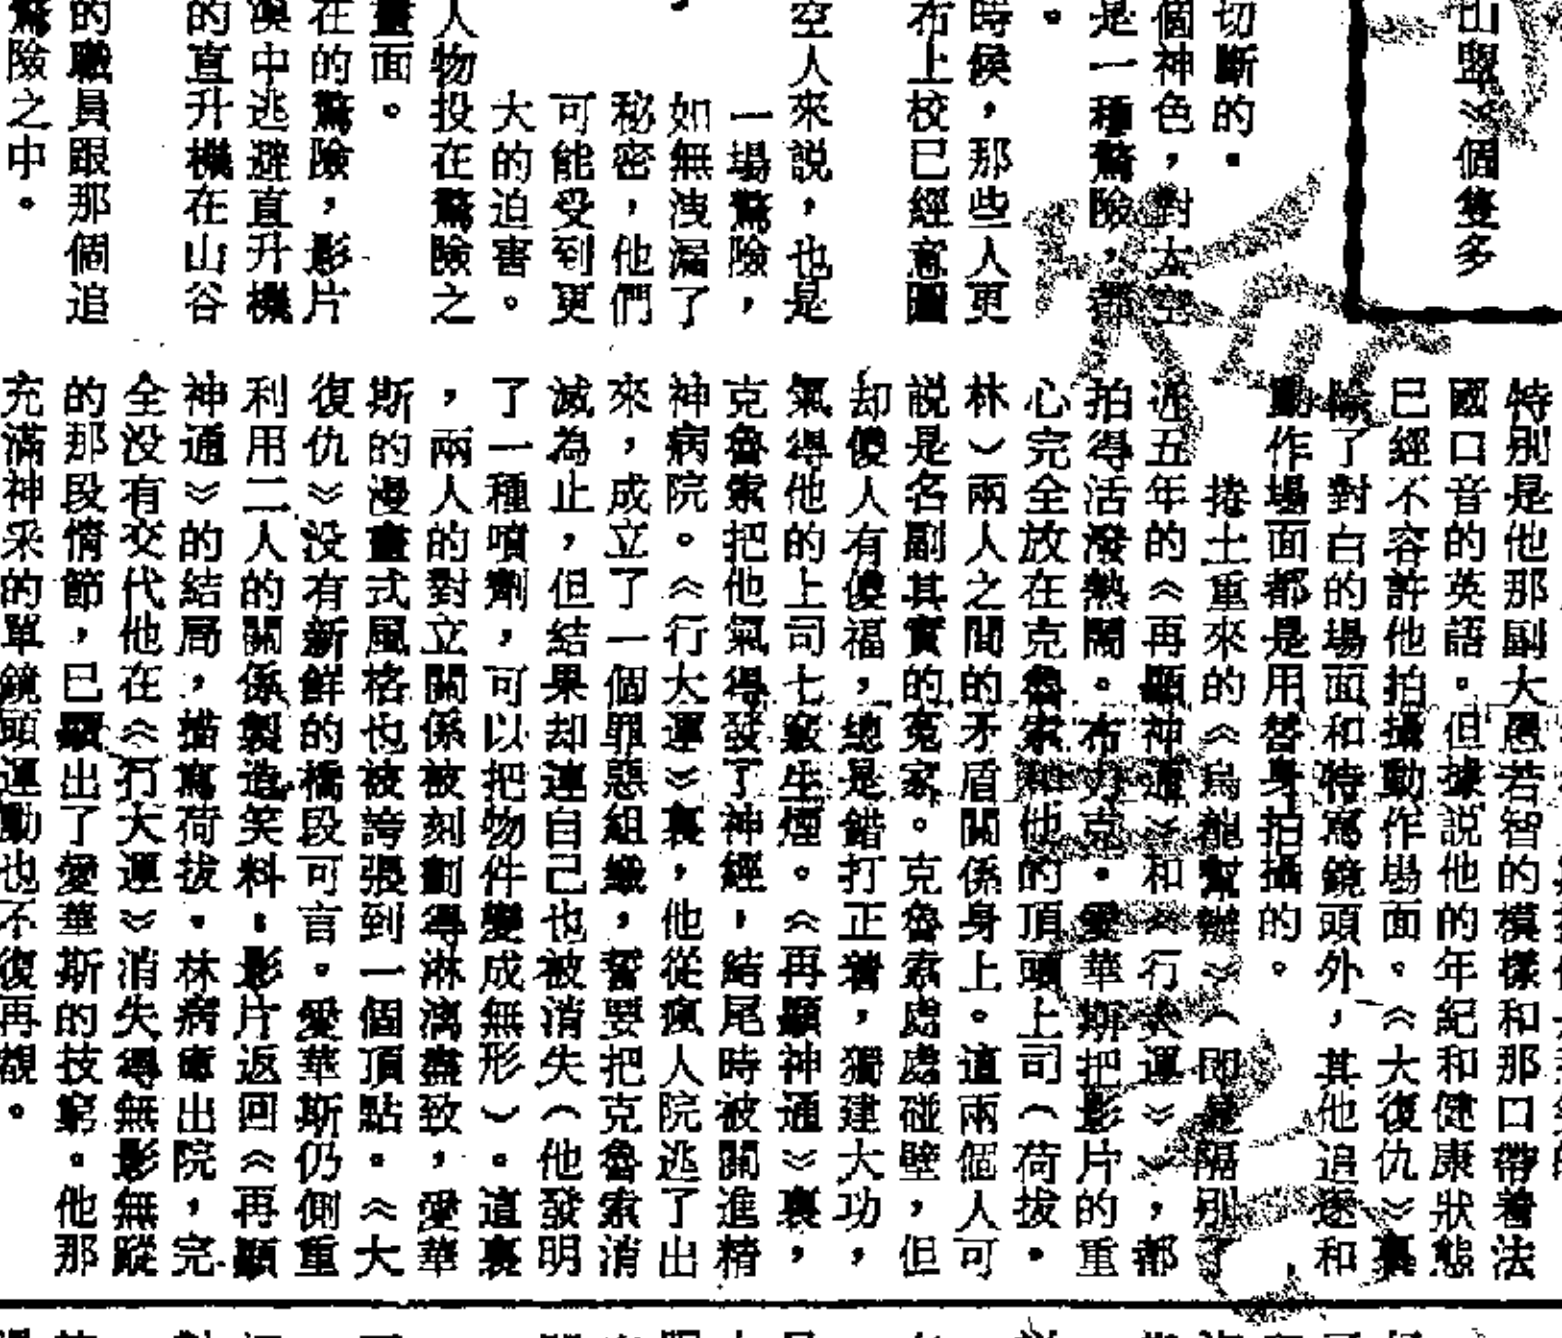 山盟》個隻多
切斷的。
個神色，對太空
是一種驚險，都
。
時候，那些人更
布上校已經意圖
空人來説，也是
一場驚險，
如無洩漏了
秘密，他們
可能受到更
大的迫害。
人物投在驚險之
畫面。
在的驚險，影片
漠中逃避直升機
的直升機在山谷
的職員跟那個追
驚險之中。
特別是他那副大愚若智的模樣和那口帶着法
國口音的英語。但據説他的年紀和健康狀態
已經不容許他拍攝動作場面。《大復仇》裏
除了對白的場面和特寫鏡頭外，其他追逐和
動作場面都是用替身拍攝的。
捲土重來的《烏龍幫辦》（即是隔別了
近五年的《再顯神通》和《行大運》），都
拍得活潑熱鬧。布力克・愛華斯把影片的重
心完全放在克魯索和他的頂頭上司（荷拔・
林）兩人之間的矛盾關係身上。這兩個人可
説是名副其實的冤家。克魯索處處碰壁，但
却傻人有傻福，總是錯打正着，獨建大功，
氣得他的上司七竅生煙。《再顯神通》裏，
克魯索把他氣得發了神經，結尾時被關進精
神病院。《行大運》裏，他從瘋人院逃了出
來，成立了一個罪惡組織，誓要把克魯索消
滅為止，但結果却連自己也被消失（他發明
了一種噴劑，可以把物件變成無形）。這裏
，兩人的對立關係被刻劃得淋漓盡致，愛華
斯的漫畫式風格也被誇張到一個頂點。《大
復仇》没有新鮮的橋段可言。愛華斯仍側重
利用二人的關係製造笑料。影片返回《再顯
神通》的結局，描寫荷拔・林病癒出院，完
全没有交代他在《行大運》消失得無影無蹤
的那段情節，已顯出了愛華斯的技窮。他那
充滿神采的單鏡頭運動也不復再覩。